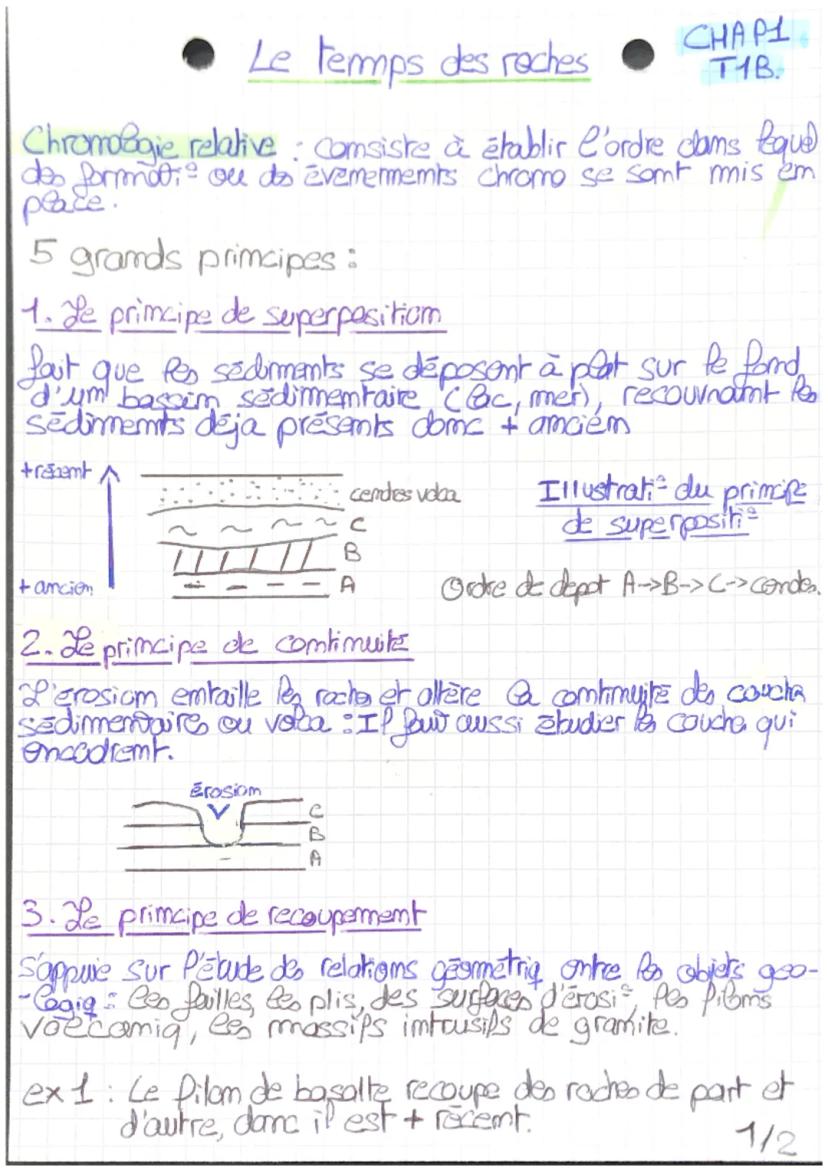 Le temps des roches
CHAP1
T1B.
Chronologie relative : consiste à établir l'ordre dans lequel
des formati° ou des évenements chrono se sont mis en
place.
5 grands principes :
1. Le principe de superposition
fait que les sédiments se déposent à plat sur le fond
d'un bassin sédimentaire (lac, mer), recouvrant les
sédiments déja présents donc + ancien
+ récent
cendres volca
C
B
A
+ ancien
Illustrati° du principe
de superpositi°
Ordre de depot A->B->C->cendres.
2. Le principe de continuité
L'erosion entaille les roches et altère la continuité des couches
sédimentaires ou volca : Il faut aussi étudier les couches qui
encadrent.
érosion
C
B
A
3. Le principe de recoupement
S'appuie sur l'étude des relations géométriq entre les objets géo-
-logiq : les failles, les plis, des surfaces d'érosi°, les filons
volcaniq, les massifs intrusifs de granite.
ex 1 : Le filon de basalte recoupe des roches de part et
d'autre, donc il est + récent.
1/2